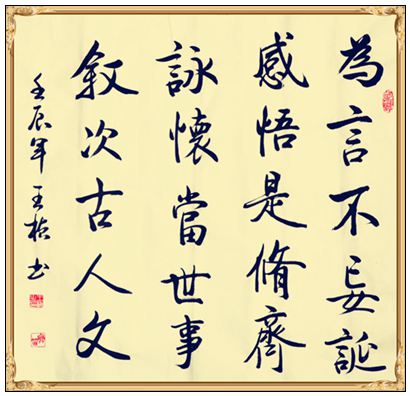 為言不妄誕
感悟是脩齋
詠懷當世事
叙次古人文
壬辰年 王 书